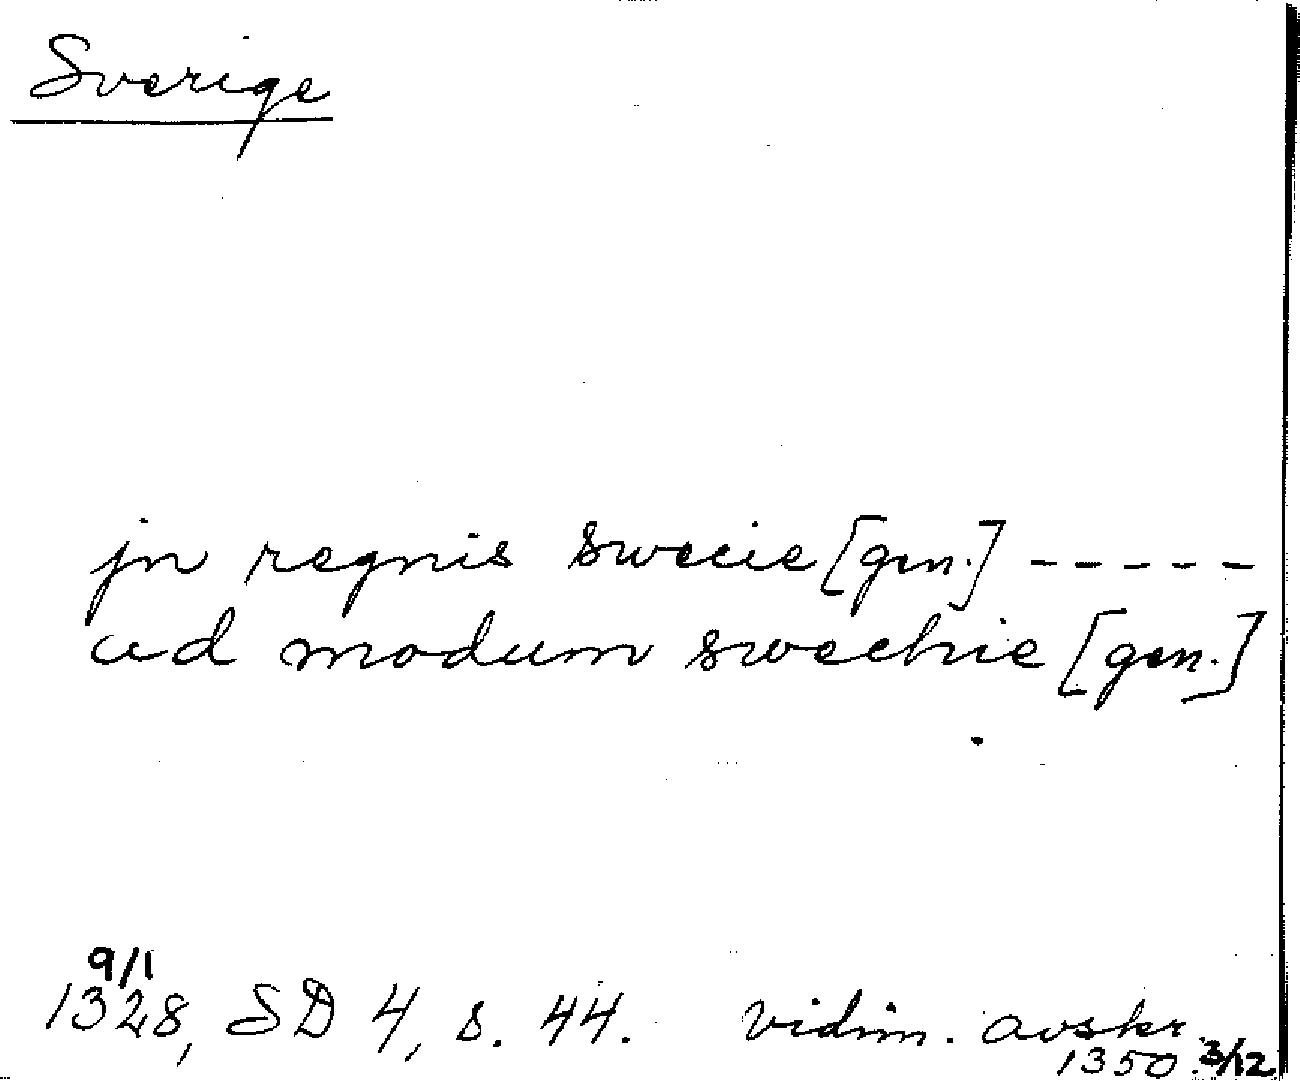 Sverige
jn regnis swecie [gen.] -----
ad modum swechie [gen.]
9/1
1328, SD 4, s. 44. vidim. avskr.
1350 3/12